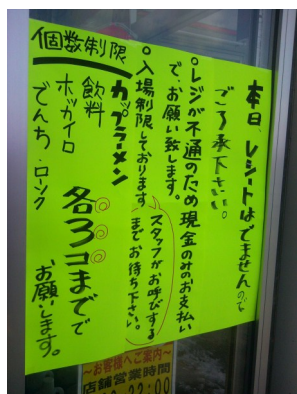 本日、レシートはでませんので
ご了承下さい。
○レジが不通のため現金のみのお支払い
で、お願い致します。
○入場制限しております。
スタッフがお呼びする
までお待ち下さい。
個数制限
カップラーメン
飲料
ホッカイロ
でんち・ロンク
各3コまでで
お願いします。
〜お客様へご案内〜
店舗営業時間
22:00